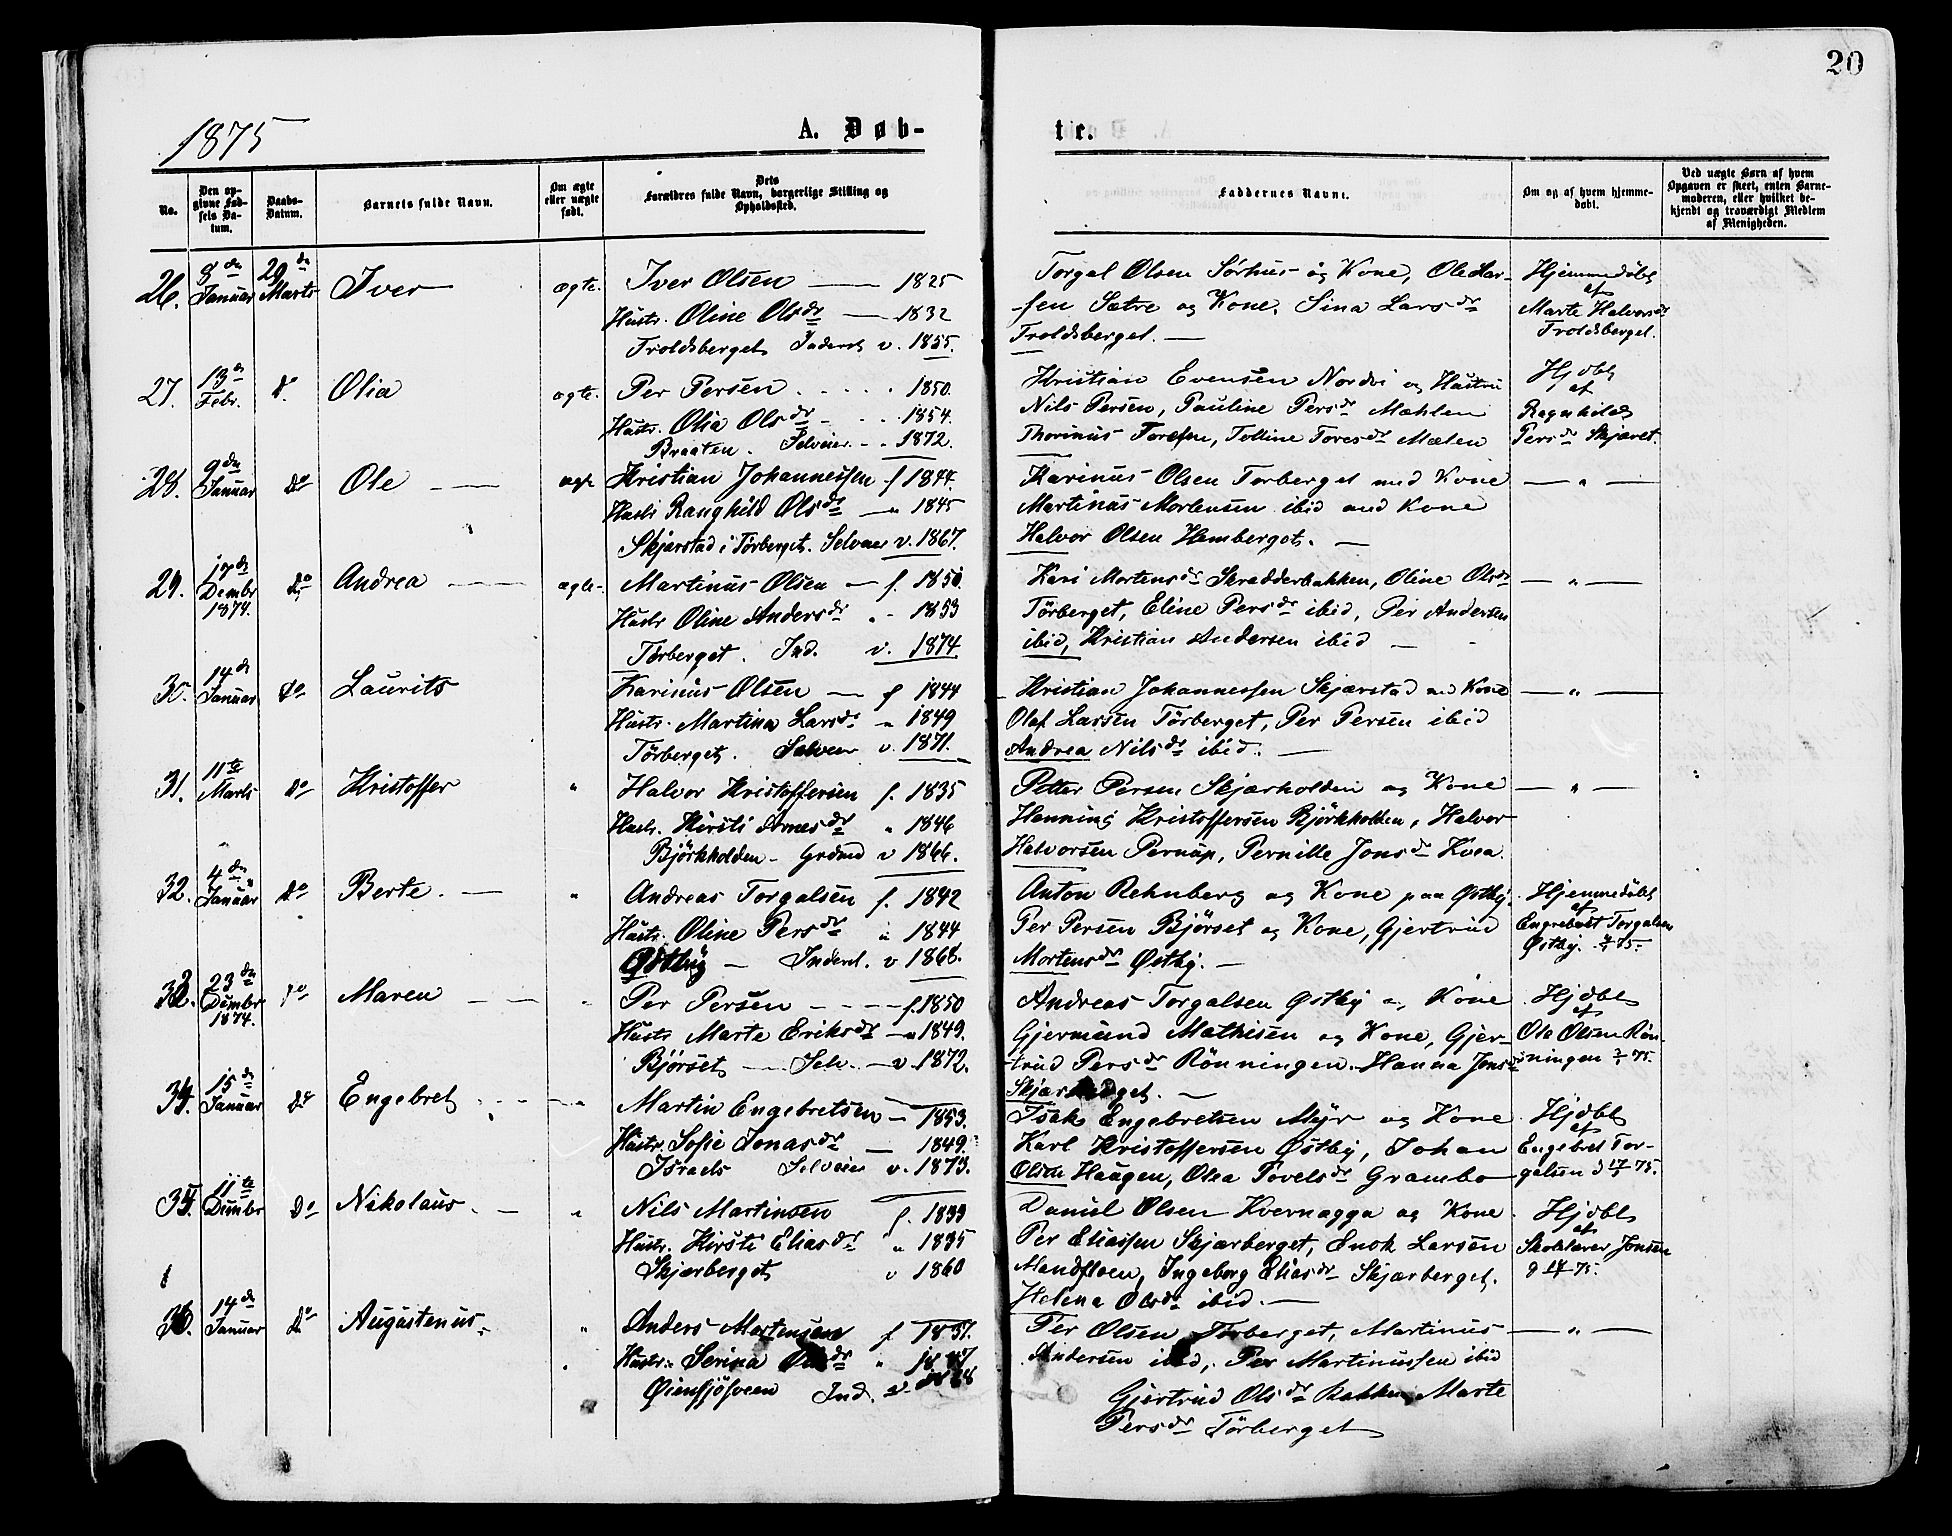 20
1875
A. Døb-
te.
No.
Den op-
givne Fød-
sels Da-
tum.
Daabs-
Datum.
Barnets fulde Navn.
Om ægte
eller uægte
født.
Dets
Forældres fulde Navn, borgerlige Stilling og
Opholdssted.
Faddernes Navne.
Om og af hvem hjemme-
døbt.
Ved uægte Børn af hvem
Opgaven er skeet, enten Barne-
moderen, eller hvilket be-
kjendt og troværdigt Medlem
af Menigheden.
26. 8de Januar 29de Marts Iver ægte. Iver Olsen — 1825
Hustr. Oline Olsdr — 1832
Troldsberget Inderst v. 1855.
Torgal Olsen Sörhus og Kone, Ole Lar-
sen Sætre og Kone. Sina Larsdr
Troldsberget. —
Hjemmedöbt
af
Marte Halvorsdr
Troldsberget.
27. 13de Febr. do. Olia ægte. Per Persen . . . . 1850.
Hustr. Olia Olsdr - . . 1854.
Braaten. Selveier - - 1872.
Kristian Evensen Nordvi og Hustru
Nils Persen, Pauline Persdr Mæhlen
Thorinus Toresen, Tolline Toresdr Mælen
Hjdbt
af
Ragnhild
Persdr Skjæret.
28. 9de Januar do Ole — ægte Kristian Johannessen f 1844.
Hustr Ranghild Olsdr — " 1845
Skjærstad i Törberget. Selveier v. 1867.
Karinus Olsen Torberget med Kone
Martinus Mortensen ibid med Kone
Halvor Olsen Hemberget. —
— " —
29. 17de Dembr 1874. do Andrea — ægte- Martinus Olsen — f. 1850.
Hustr Oline Andersdr " - 1853
Törberget. Ind. v. 1874
Kari Mortensdr Skradderbakken, Oline Olsdr
Törberget, Eline Persdr ibid, Per Andersen
ibid, Kristian Andersen ibid —
— " —
30. 14de Januar do Laurits Karinus Olsen — f 1844
Hustr. Martina Larsdr " 1849
Törberget. Selveier v. 1871.
Kristian Johannessen Skjærstad med Kone
Olaf Larsen Törberget, Per Persen ibid
Andrea Nilsdr ibid. —
— " —
31. 11te Marts do Kristoffer " Halvor Kristoffersen f. 1835
Hustr. Kirsti Arnesdr " 1846
Björkholden - Grdmd v 1866.
Petter Persen Skjærholden og Kone
Henning Kristoffersen Björkholden, Halvor
Halvorsen Pernup, Pernille Jonsdr Kvea.
— " —
32. 4de Januar do Berte. — " Andreas Torgalsen f. 1842
Hustr. Oline Persdr " 1844
Østby — Inderst. v 1868.
Anton Rehnberg og Kone paa Østby.
Per Persen Bjørset og Kone, Gjertrud
Mortensdr Østby. —
Hjemmedöbt
af
Engebret Torgalsen
Østby.
33. 23de Dembr 1874. do Maren — " Per Persen - - - - f. 1850
Hustr Marte Eriksdr — " 1849.
Bjørset — Selv. — v. 1872.
Andreas Torgalsen Østby og Kone
Gjermund Mathisen og Kone, Gjer-
trud Persdr Rönningen. Hanna Jonsdr
Skjærberget. —
Hjdbt
af
Ole Olsen Rön-
ningen
34. 15de Januar do Engebret - - - " Martin Engebretsen — 1853.
Hustr. Sofie Jonasdr — 1849.
Israels Selveier v. 1873.
Isak Engebretsen Myr og Kone
Karl Kristoffersen Østby, Johan
Olsen Haugen, Olea Tovelsdr Grambo
Hjdbt
af
Engebret Tor-
galsen d 17/1 75.
35. 11te Dembr do Nikolaus. — " Nils Martinsen f. 1833
Hustr. Kirsti Eliasdr " 1835
Skjærberget v 1860
Daniel Olsen Kvernagga og Kone.
Per Eliassen Skjærberget, Enok Larsen
Mandfloen, Ingeborg Eliasdr Skjærberget.
Helena Olsdr ibid. —
Hjdbt
af
Skolelærer Jonsen
36. 14de Januar do Augustenus. " Anders Mortensen f 1837.
Hustr. Serina Olsdr "
Øiensjösveen Ind. v.
Per Olsen Törberget, Martinus
Andersen ibid, Per Martinussen ibid
Gjertrud Olsdr Bakken, Marte
Persdr Törberget
— " —